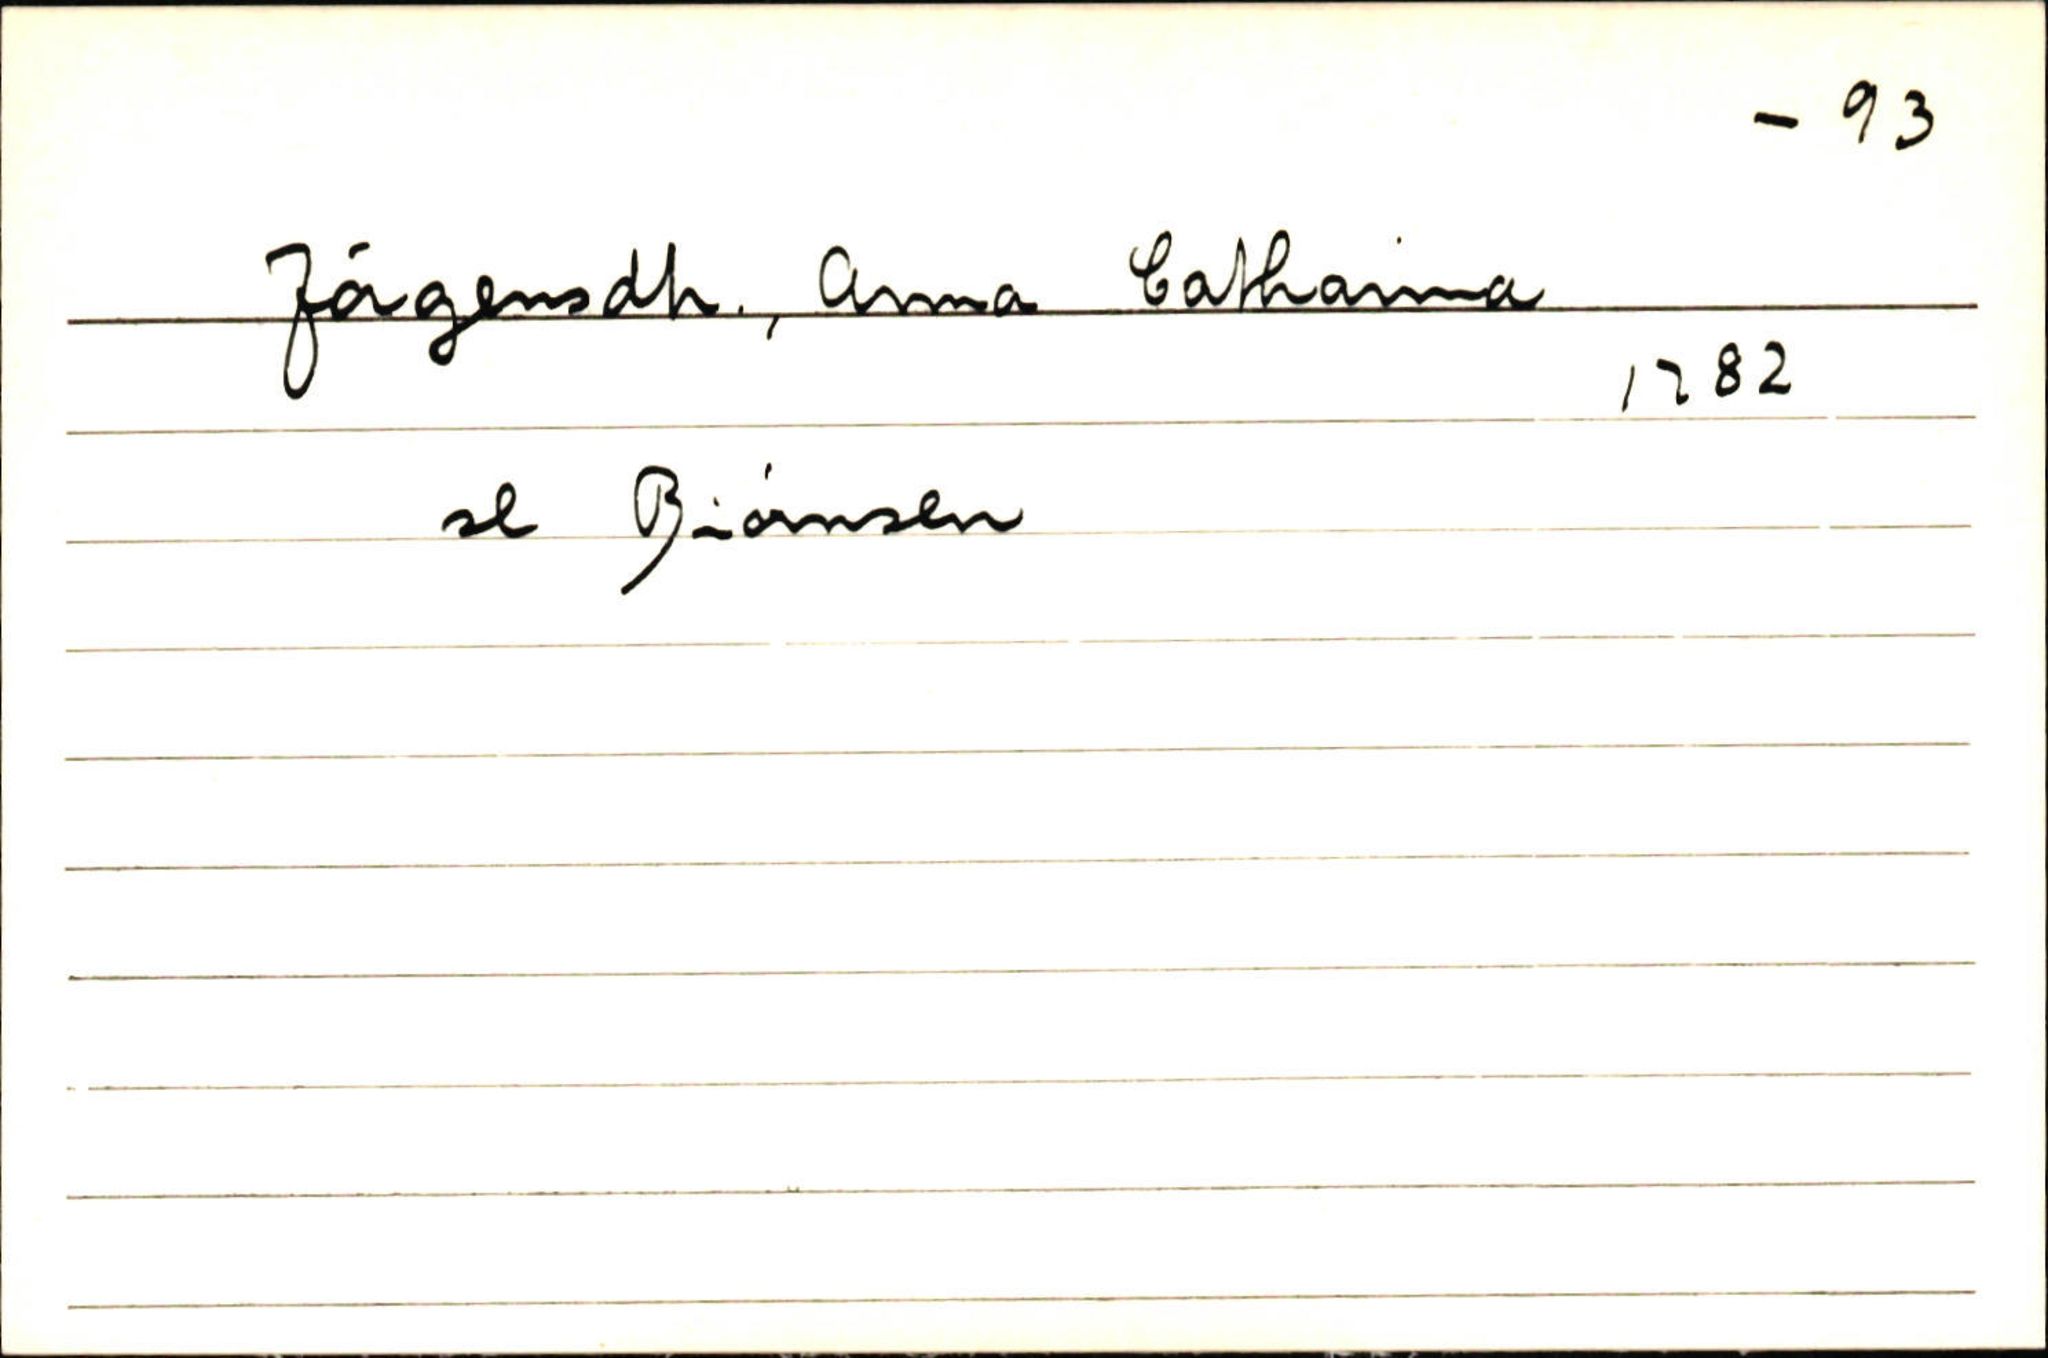 - 93
Jörgensdtr., Anna Catharina
1782
se Biörnsen